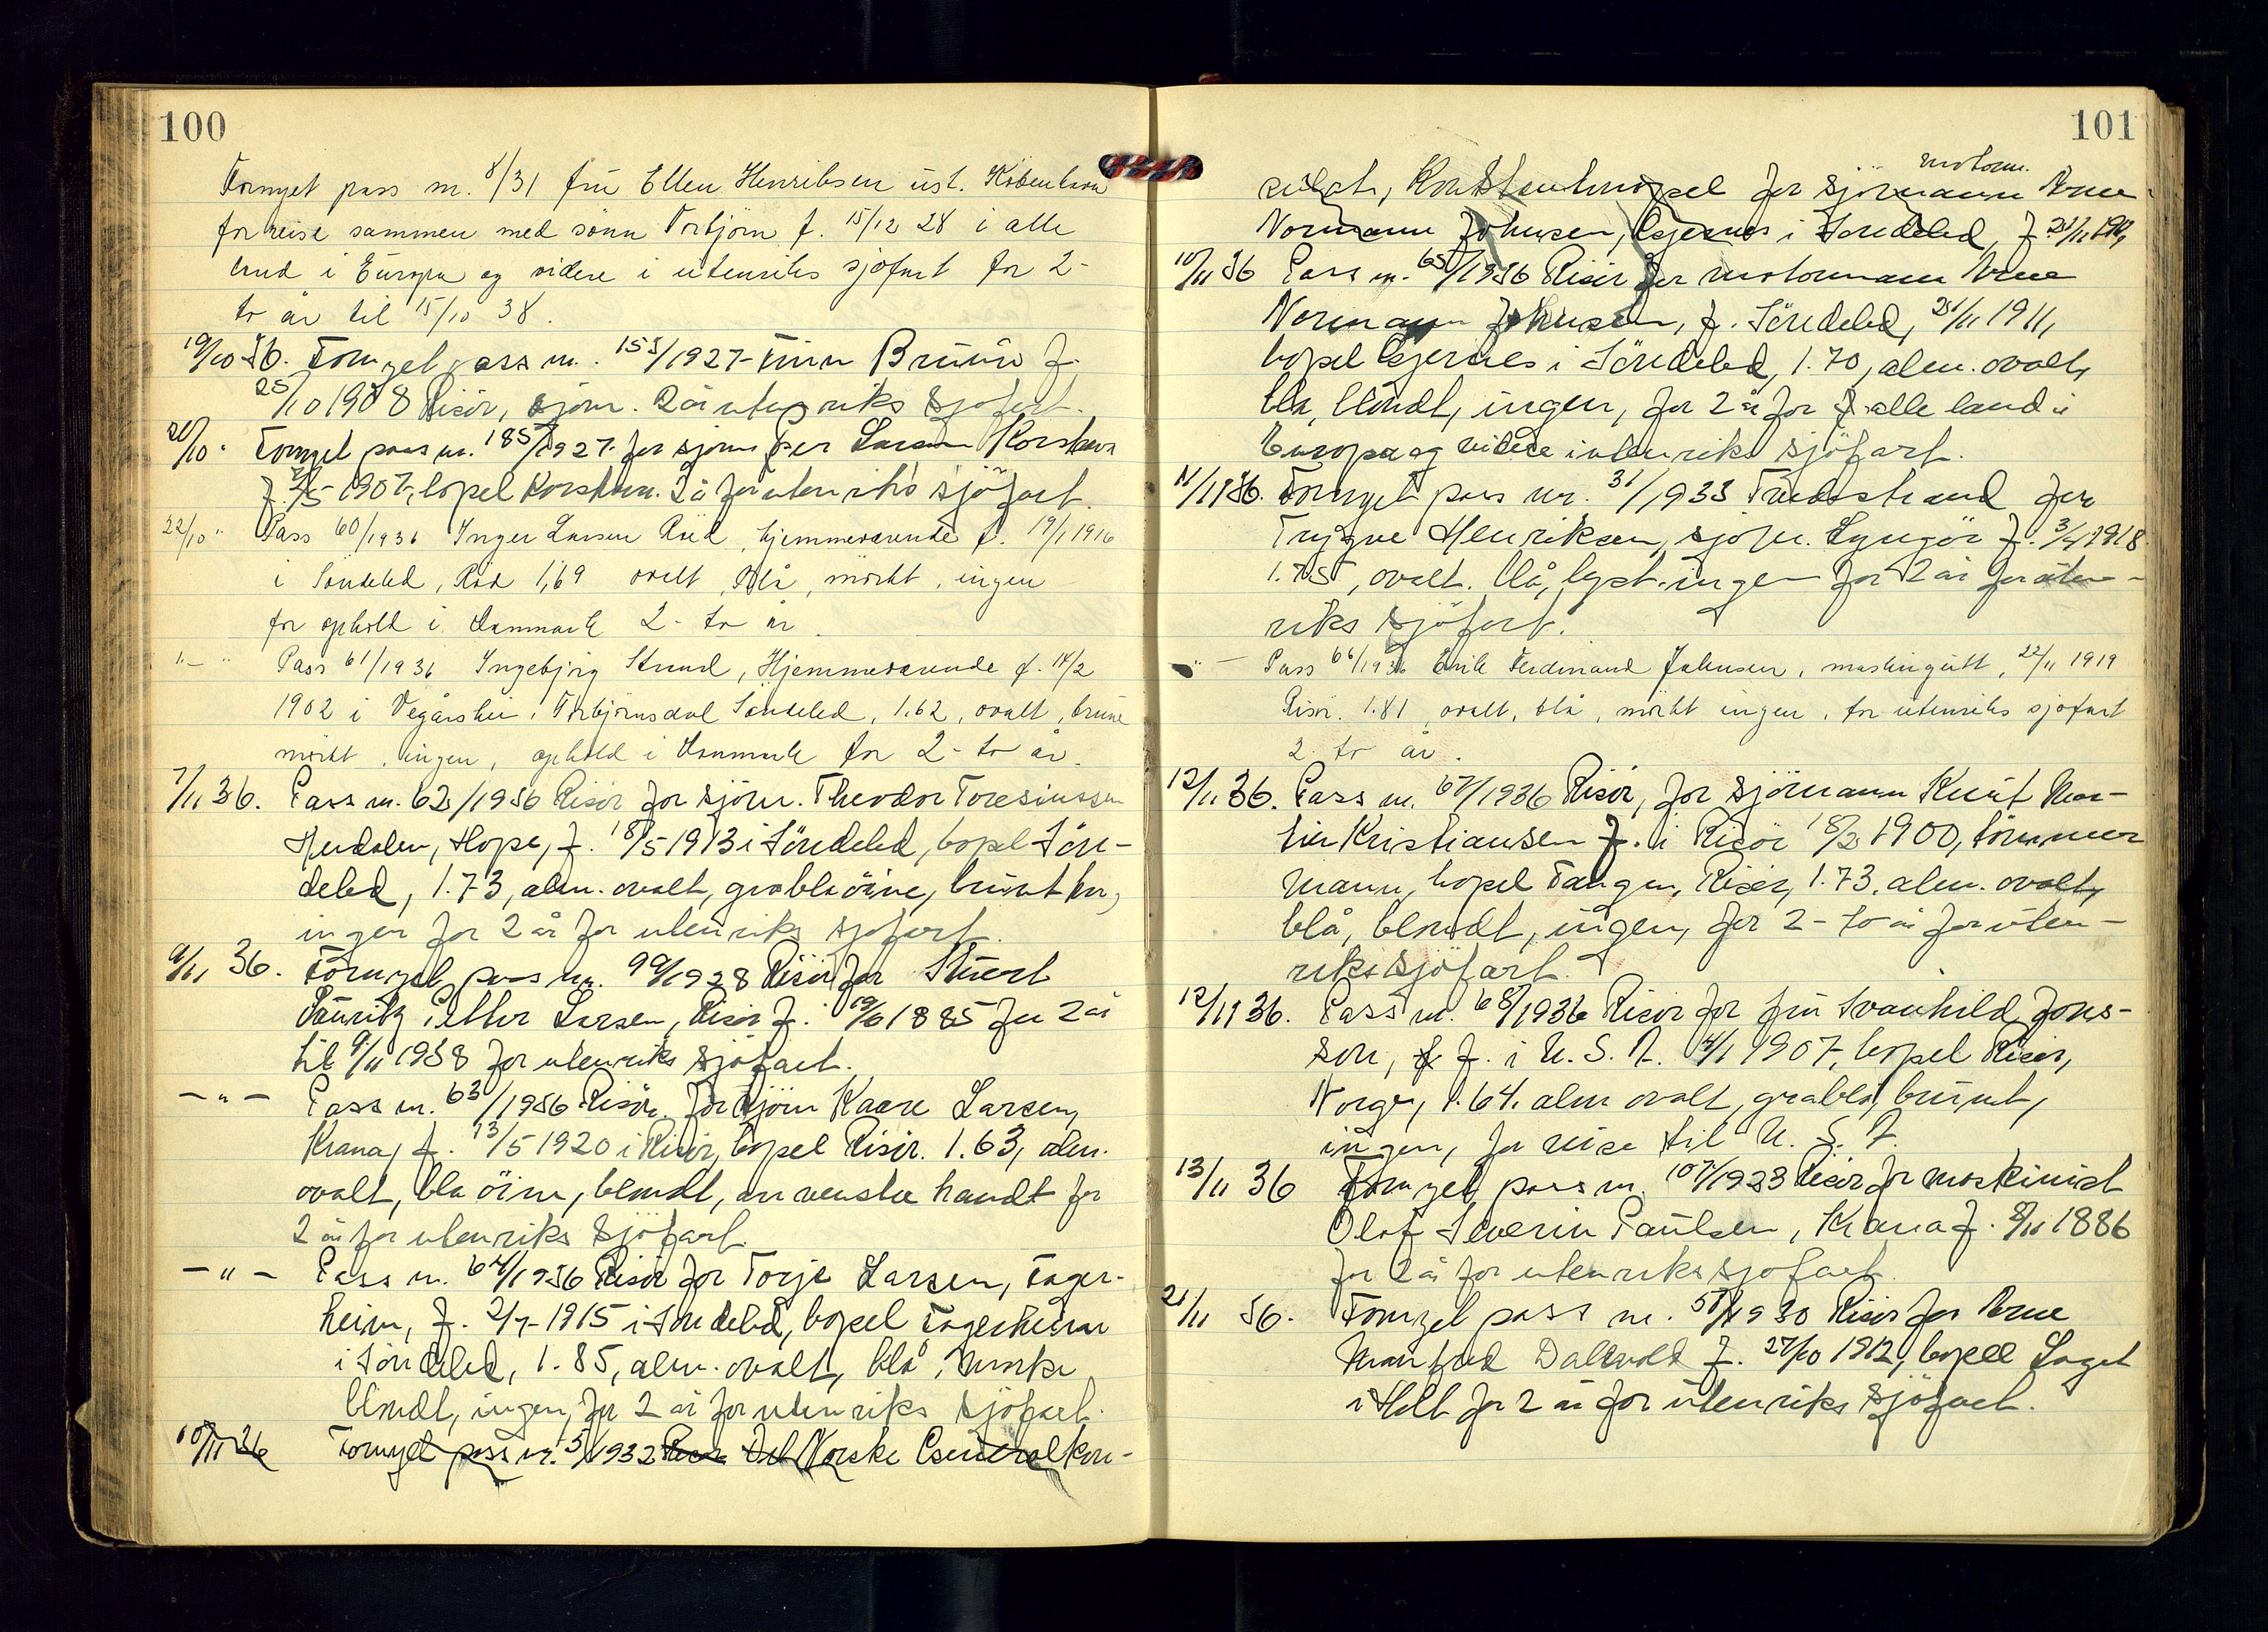 100
Fornyet pass nr. 8/31 fru Ellen Henriksen ust. København
for reise sammen med sønn Torbjörn f. 15/12 28 i alle
land i Europa og videre i utenriks sjøfart for 2-
to år til 15/10 38.
19/10 36. Fornyet pass nr. 153/1927 Finn Bruun f.
25/10 1908 Risör, sjöm. 2 år utenriks sjöfart.
20/10 " Fornyet pass nr. 185/1927 for sjöm Per Larsen Korshavn
f. /5 1907, bopel Korshavn. 2 år for utenriks sjöfart.
22/10 " Pass 60/1936 Inger Larsen Röd, hjemmeværende f. 19/1 1916
i Söndeled, Röd 1,69 ovalt, blå, mörkt, ingen
for ophold i Danmark 2- to år.
"- " Pass 61/1936 Ingebjörg Strand, Hjemmeværende f. 14/2
1902 i Vegårshei, Torbjörnsdal Söndeled, 1.62, ovalt, brune
mörkt, ingen, ophold i Danmark for 2- to år.
7/11 36. Pass nr. 62/1936 Risör for sjöm. Theodor Toresinussen
Hendalen, Hope, f. 18/5 1913 i Söndeled, bopel Sön-
deled, 1.73, alm. ovalt, gråblå öine, brunt hår,
ingen for 2 år for utenriks sjöfart.
9/11 36. Fornyet pass nr. 99/1928 Risör for
Petter Larsen, Risör f. 19/6 1885 for 2 år
til 9/11 1938 for utenriks sjöfart.
- " - Pass nr. 63/1936 Risör. for Björn Kaare Larsen,
Krana, f. 13/5 1920 i Risör, bopel Risör. 1.63, alm.
ovalt, blå öine, blondt, arr venstre handt for
2 år for utenriks sjöfart.
- " - Pass nr. 64/1936 Risör for Torje Larsen, Fager-
heim, f. 2/7 1915 i Söndeled, bopel Fagerheim
i Söndeled, 1.85, alm. ovalt, blå, mörke
blondt, ingen, for 2 år for utenriks sjöfart.
10/11 36 Fornyet pass nr. 5/1932 Risör Det Norske Generalkon-
101
sulat, Konstantinopel for sjömann motorm. Arne
Normann Johnsen, Gjernes i Söndeled, f 21/11 1911,
10/11 36 Pass nr. 65/1936 Risör for motormann Arne
Normann Johnsen, f. Söndeled, 21/11 1911,
bopel Gjernes i Söndeled, 1.70, alm. ovalt,
blå, blondt, ingen, for 2 år for alle land i
Europa og videre i utenriks sjöfart.
11/11 36. Fornyet pass nr. 31/1933 for
Trygve Henriksen, sjöm. Lyngör f. 3/4 1918
1.75, ovalt. blå, lyst. ingen for 2 år for uten-
riks sjöfart.
" - Pass 66/1936 Erik Ferdinand Johnsen, maskingutt, 22/11 1919
Risör. 1.81, ovalt, blå, mörkt ingen, for utenriks sjöfart
2 to år.
12/11 36. Pass nr. 67/1936 Risör, for sjömann Knut Mar-
tin Kristiansen f. i Risör 18/2 1900, tömmer
mann, bopel Tangen, Risör, 1.73, alm. ovalt,
blå, blondt, ingen, for 2- to år for uten-
riks sjöfart.
12/11 36. Pass nr. 68/1936 Risör for fru Svanhild Jons-
son, f. i U.S.A. 4/1 1907, bopel Risör,
Norge, 1.64. alm ovalt, gråblå, brunt,
ingen, for reise til U.S.A.
13/11 36 Fornyet pass nr. 107/1923 Risör for maskinist
Olaf Severin Paulsen, Krana f. 8/11 1886
for 2 år for utenriks sjöfart.
21/11 36. Fornyet pass nr. 58/1930 Risör for Arne
Manfred Dalevold f. 27/10 1912, bopel Laget
i Holt for 2 år for utenriks sjöfart.